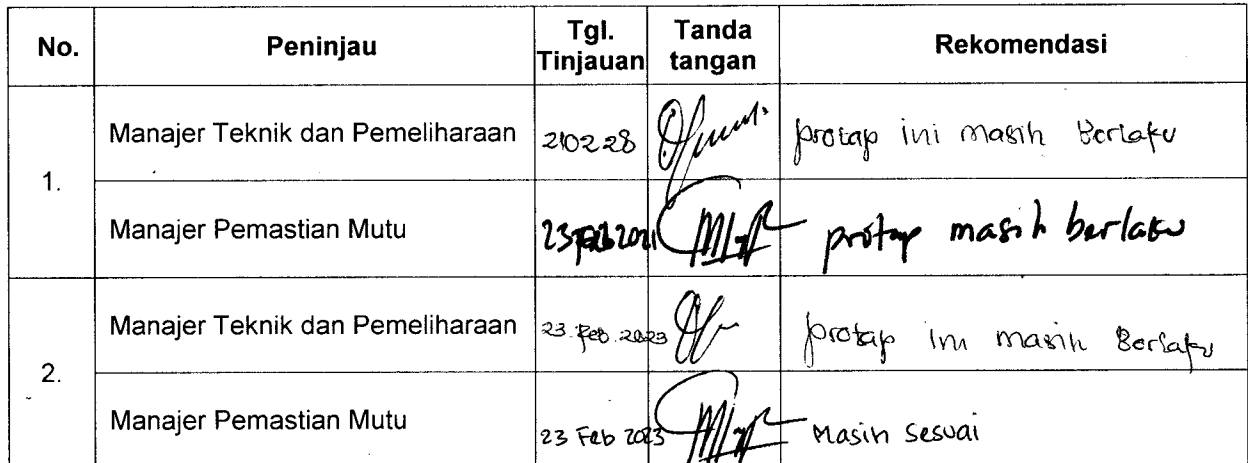 No. Peninjau Tgl. Tinjauan Tanda tangan Rekomendasi
1.
Manajer Teknik dan Pemeliharaan 210228 protap ini masih Berlaku
Manajer Pemastian Mutu 23 Feb 2021 protap masih berlaku
2.
Manajer Teknik dan Pemeliharaan 23 Feb 2023 protap ini masih Berlaku
Manajer Pemastian Mutu 23 Feb 2023 Masih sesuai